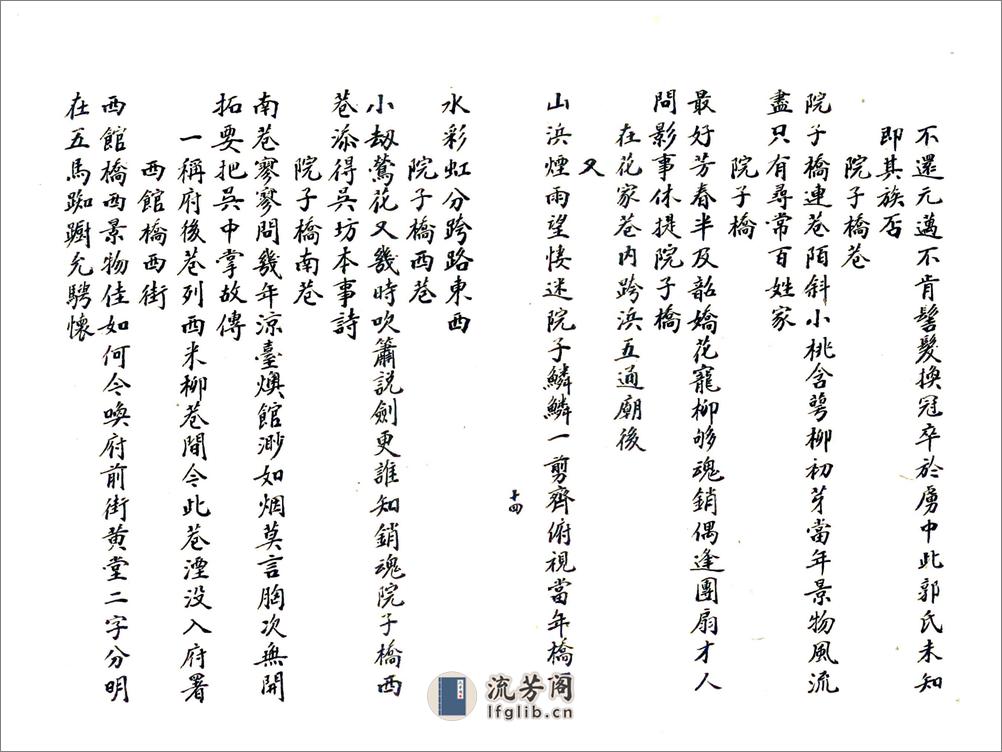 不還元邁不肯髻髮換冠卒於虜中此郭氏未知
即其族否
院子橋巷
院子橋連巷陌斜小桃含萼柳初芽當年景物風流
盡只有尋常百姓家
院子橋
最好芳春半及韶嬌花寵柳够魂銷偶逢團扇才人
問影事休提院子橋
在花家巷內跨浜五通廟後
又
山浜煙雨望悽迷院子鱗鱗一剪齊俯視當年橋
十四
水彩虹分跨路東西
院子橋西巷
小劫鶯花又幾時吹簫說劍更誰知銷魂院子橋西
巷添得吳坊本事詩
院子橋南巷
南巷寥寥問幾年涼臺燠館渺如烟莫言胸次無開
拓要把吳中掌故傳
一稱府後巷列西米柳巷間今此巷湮没入府署
西館橋西街
西館橋西景物佳如何今喚府前街黄堂二字分明
在五馬踟躕允騁懷
流芳阁
lfglib.cn